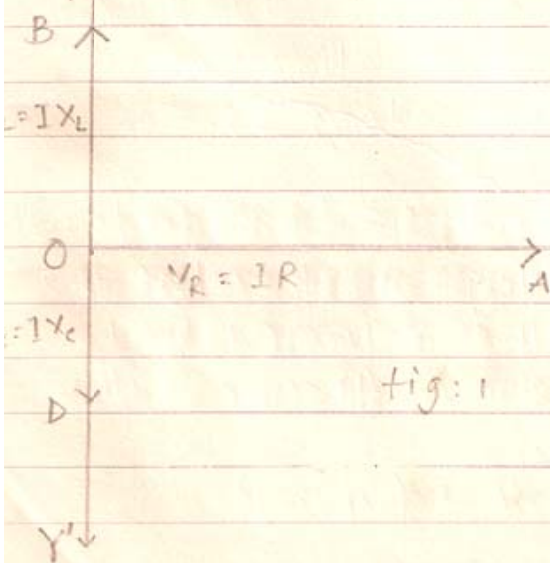 B
= I X_L
O
V_R = I R
A
= I X_C
fig: 1
D
Y'